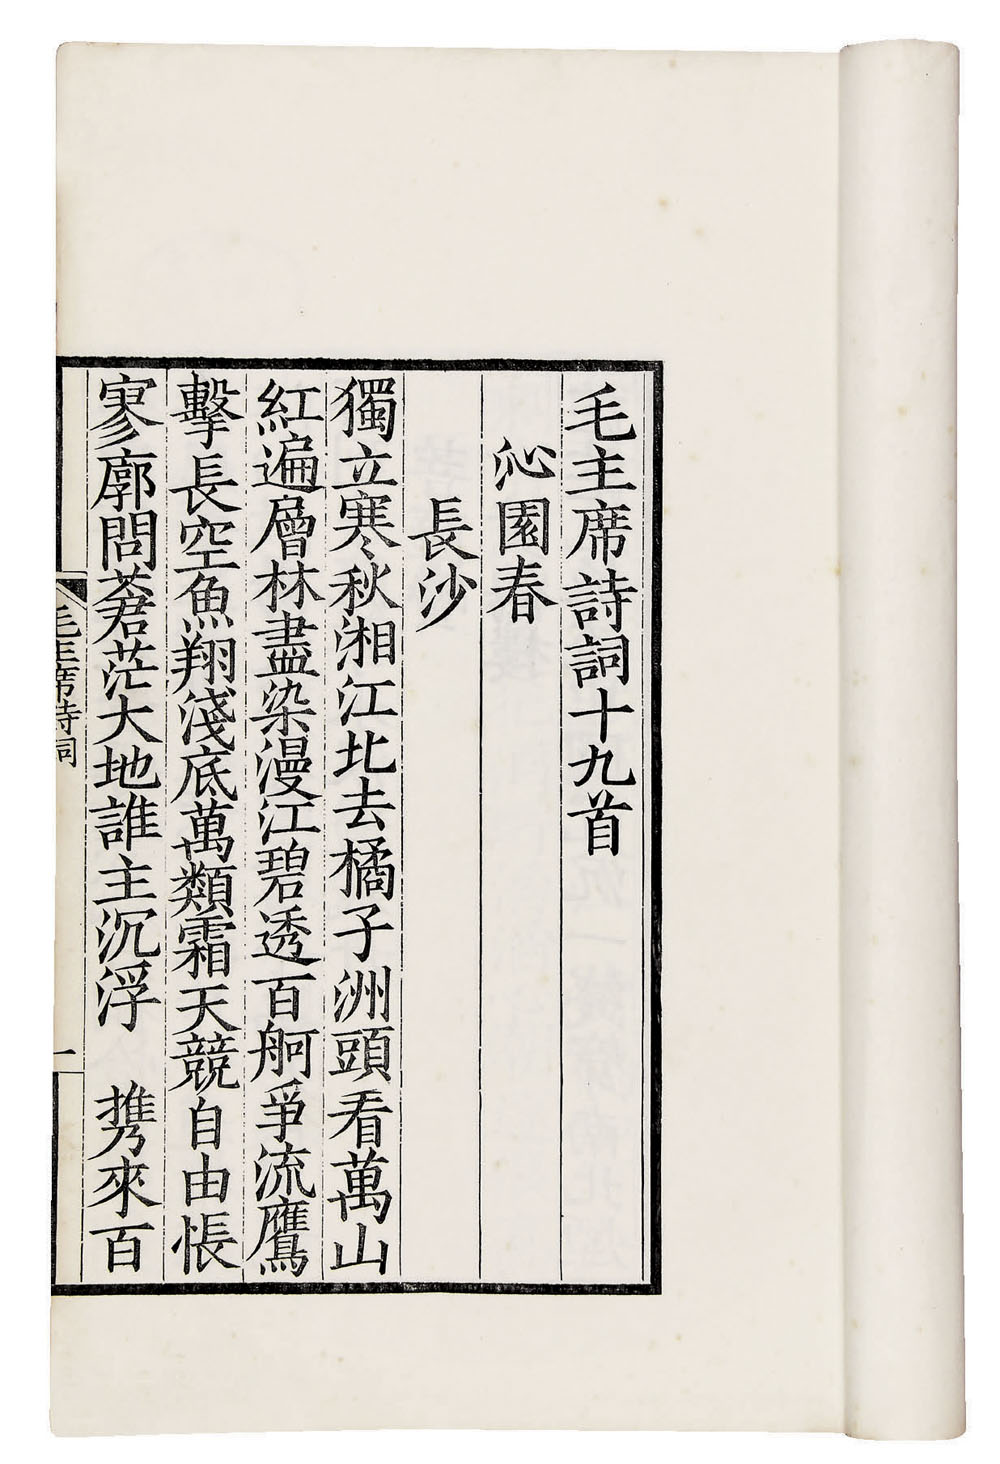 毛主席詩詞十九首
沁園春
長沙
獨立寒秋湘江北去橘子洲頭看萬山
紅遍層林盡染漫江碧透百舸爭流鷹
擊長空魚翔淺底萬類霜天競自由悵
寥廓問蒼茫大地誰主沉浮　携來百
毛主席詩詞
一